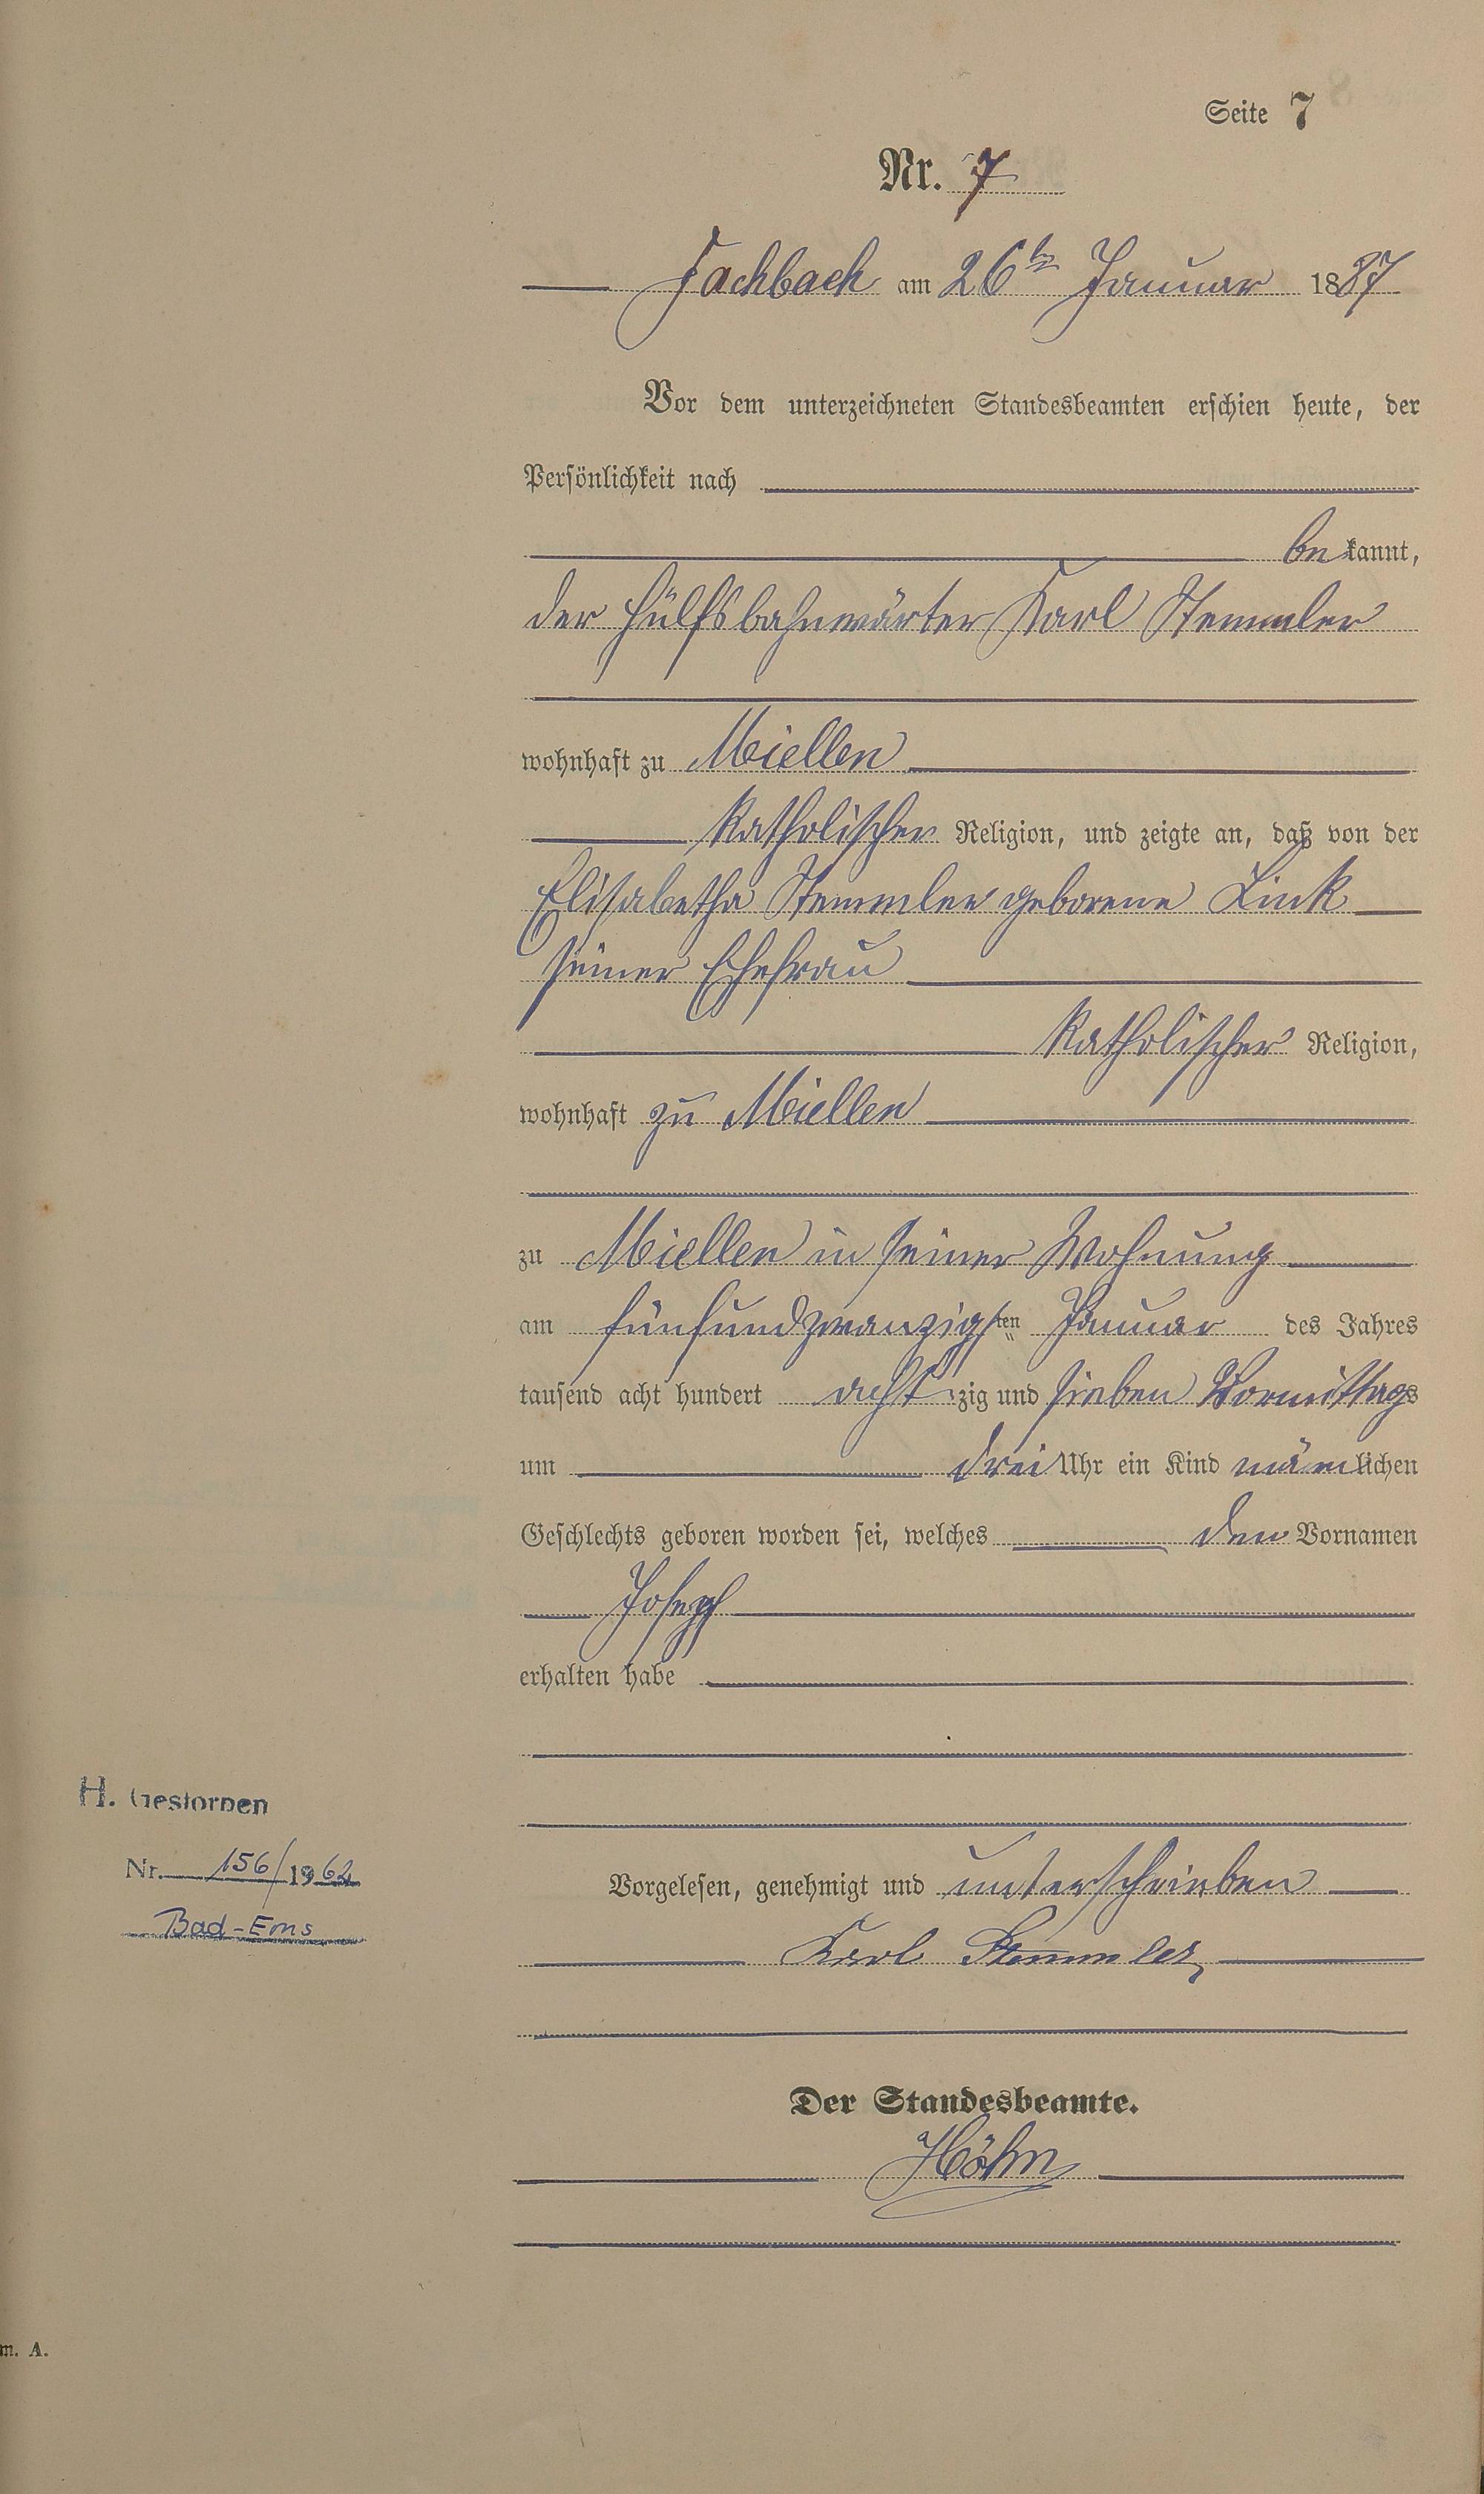 Seite 7
Nr. 7
Fachbach am 26ten Januar 1887
Vor dem unterzeichneten Standesbeamten erschien heute, der
Persönlichkeit nach
bekannt,
der Hülfsbahnwärter Karl Stemmler
wohnhaft zu Miellen
katholischer Religion, und zeigte an, daß von der
Elisabetha Stemmler geborene Link
seiner Ehefrau
katholischer Religion,
wohnhaft zu Miellen
zu Miellen in seiner Wohnung
am fünfundzwanzigsten Januar des Jahres
tausend acht hundert achtzig und sieben Vormittags
um drei Uhr ein Kind mänlichen
Geschlechts geboren worden sei, welches den Vornamen
Joseph
erhalten habe
H. Gestorben
Nr. 156/1962
Bad-Ems
Vorgelesen, genehmigt und unterschrieben
Karl Stemmler
Der Standesbeamte.
Höhn
m. A.